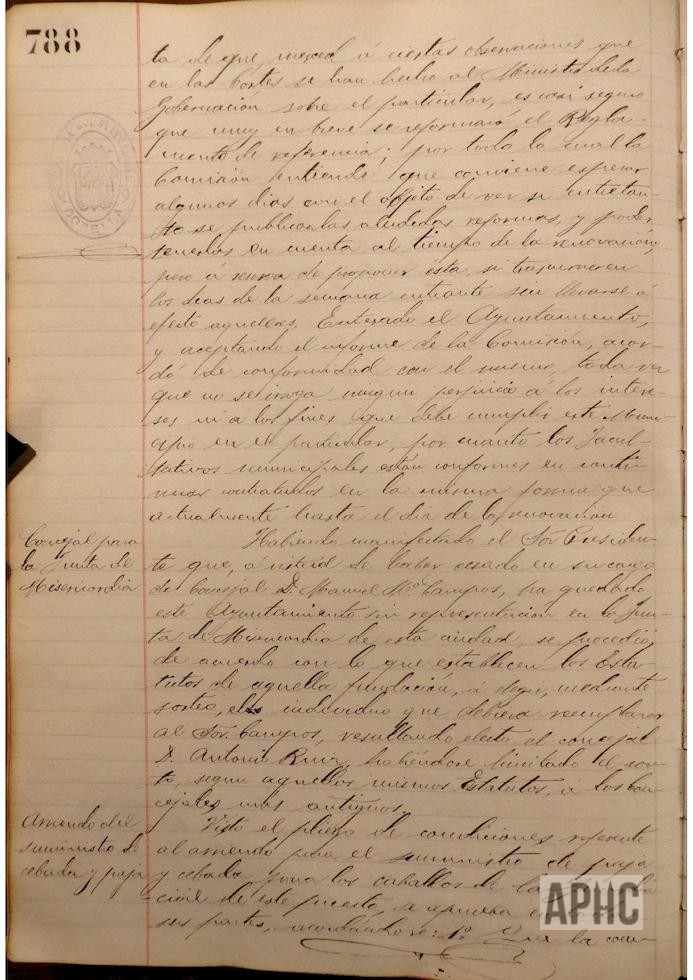 788
ta de que, merced á ciertas observaciones que
en las Cortes se han hecho al Ministro de la
Gobernación sobre el particular, es casi seguro
que muy en breve se reformará el Regla-
mento de referencia; por todo lo cual la
Comisión entiende que conviene esperar
algunos dias con el objeto de ver si entretan-
to se publican las aludidas reformas, y poder
tenerlas en cuenta al tiempo de la renovación,
pero á reserva de proponer ésta, si trascurrieren
los dias de la semana entrante sin llevarse á
efecto aquellas. Enterado el Ayuntamiento,
y aceptando el informe de la Comisión, acor-
dó de conformidad con el mismo, toda vez
que no se irroga ningun perjuicio á los intere-
ses ni a los fines que debe cumplir este Muni-
cipio en el particular, por cuanto los Facul-
tativos municipales están conformes en conti-
nuar contratados en la misma forma que
actualmente hasta el dia de la renovación
Concejal para
la Junta de
Misericordia
Habiendo manifestado el Sor Presiden-
te que, á virtud de haber cesado en su cargo
de Concejal D. Manuel Mª Campos, ha quedado
este Ayuntamiento sin representación en la Jun-
ta de Misericordia de esta ciudad, se procedió,
de acuerdo con lo que establecen los Esta-
tutos de aquella fundación, á elegir, mediante
sorteo, el individuo que debiera reemplazar
al Sor. Campos, resultando electo el concejal
D. Antonio Ruiz, habiéndose limitado el sor-
teo, segun aquellos mismos Estatutos, a los con-
cejales mas antiguos.
Arriendo del
suministro de
cebada y paja
Visto el pliego de condiciones referente
al arriendo para el suministro de paja
y cebada para los caballos de la
civil de este puesto, se aprueba en
sus partes, acordándose: 1º Que la con-
APHC